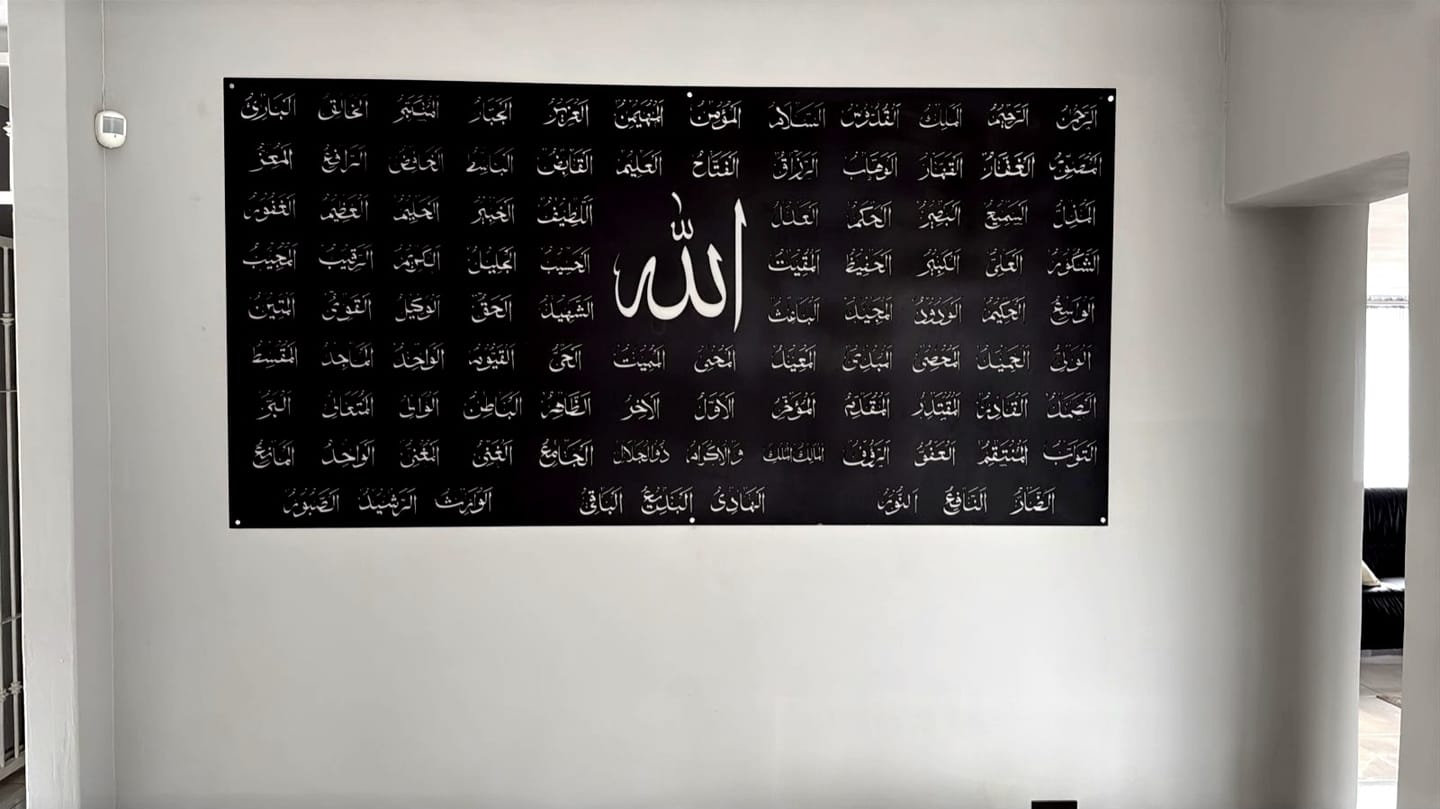 الرحمن الرحيم الملك القدوس السلام المؤمن المهيمن العزيز الجبار المتكبر الخالق البارئ
المصور الغفار القهار الوهاب الرزاق الفتاح العليم القابض الباسط الخافض الرافع المعز
المذل السميع البصير الحكم العدل اللطيف الخبير الحليم العظيم الغفور
الله
الشكور العلي الكبير الحفيظ المقيت الحسيب الجليل الكريم الرقيب المجيب
الواسع الحكيم الودود المجيد الباعث الشهيد الحق الوكيل القوي المتين
الولي الحميد المحصي المبدئ المعيد المحيي المميت الحي القيوم الواحد الماجد المقسط
الصمد القادر المقتدر المقدم المؤخر الأول الآخر الظاهر الباطن الوالي المتعالي البر
التواب المنتقم العفو الرؤوف مالك الملك ذو الجلال والإكرام الجامع الغني المغني الواحد المانع
الضار النافع النور الهادي البديع الباقي الوارث الرشيد الصبور